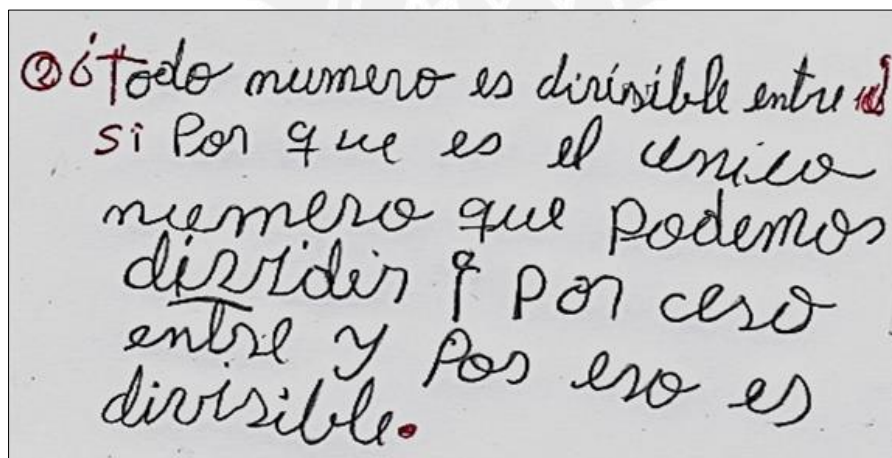 ② ¿Todo numero es divisible entre
si Por que es el unico
numero que Podemos
dividir Por cero
entre y Por eso es
divisible.